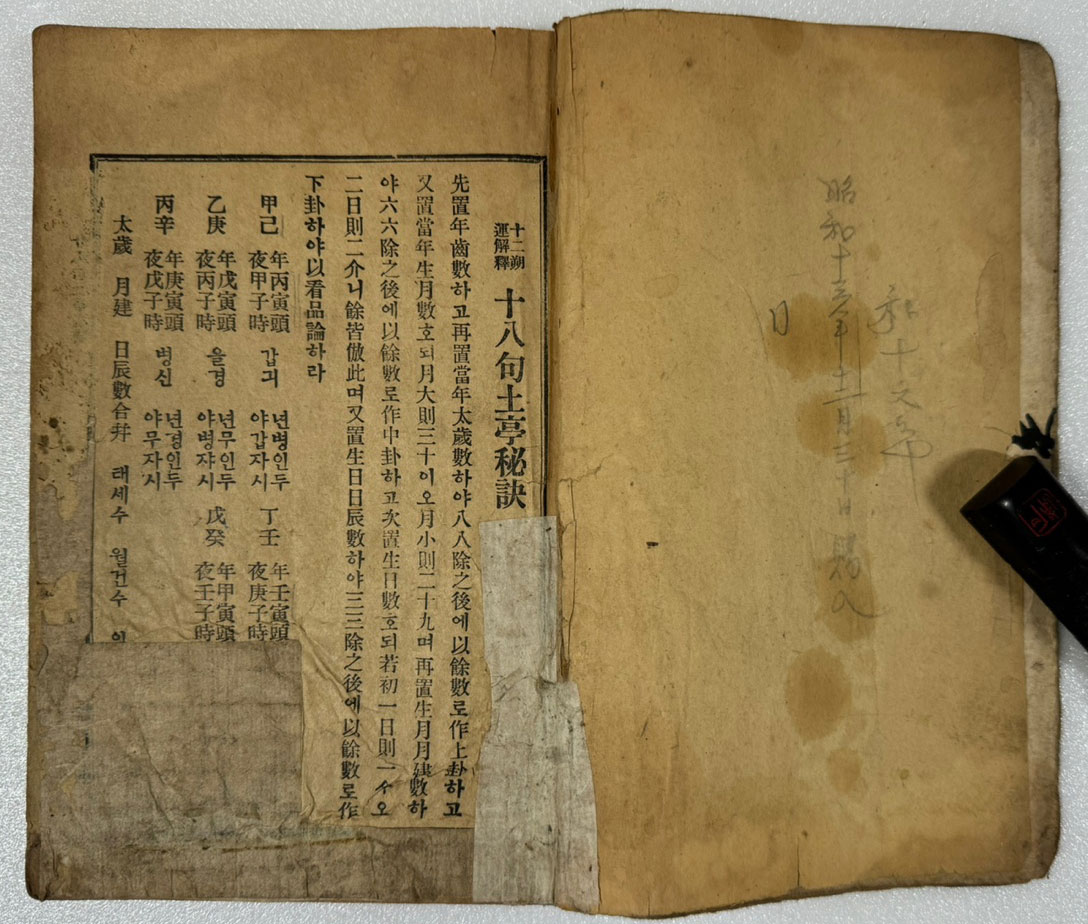 昭和十 年十二月三十日
日
十二朔
運解釋
十八句土亭秘訣
先置年齒數하고再置當年太歲數하야八八除之後에以餘數로作上卦하고
又置當年生月數호되月大則三十이오月小則二十九며再置生月月建數하
야六六除之後에以餘數로作中卦하고次置生日數호되若初一日則一介오
二日則二介니餘皆倣此며又置生日日辰數하야三三除之後에以餘數로作
下卦하야以看品論하라
甲己 年丙寅頭 夜甲子時 갑긔 년병인두 야갑자시 丁壬 年壬寅頭 夜庚子時
乙庚 年戊寅頭 夜丙子時 을경 년무인두 야병쟈시 戊癸 年甲寅頭 夜壬子時
丙辛 年庚寅頭 夜戊子時 병신 년경인두 야무자시
太歲 月建 日辰數合幷 래세수 월건수